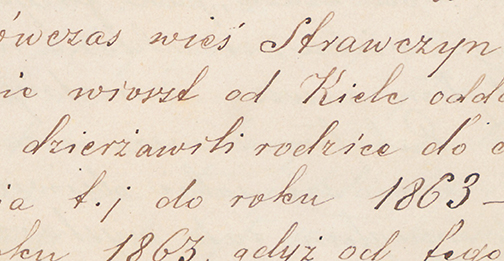 ówczas wieś Strawczyn
ie wiorst od Kielc odd
dzierżawili rodzice do
ia t.j do roku 1863 –
oku 1863, gdyż od tego